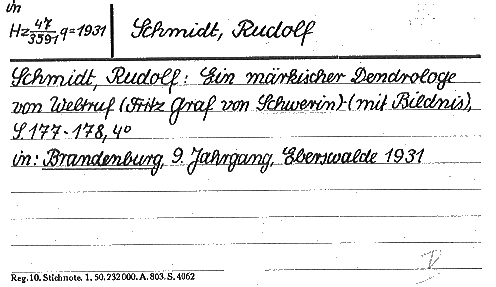 in
Hz 47/3591 q=1931
Schmidt, Rudolf
Schmidt, Rudolf: Ein märkischer Dendrologe
von Weltruf (Fritz Graf von Schwerin)-(mit Bildnis),
S 177-178, 4°
in: Brandenburg, 9. Jahrgang, Eberswalde 1931
Reg. 10. Stichnote. 1. 50. 232 000. A. 803. S. 4062